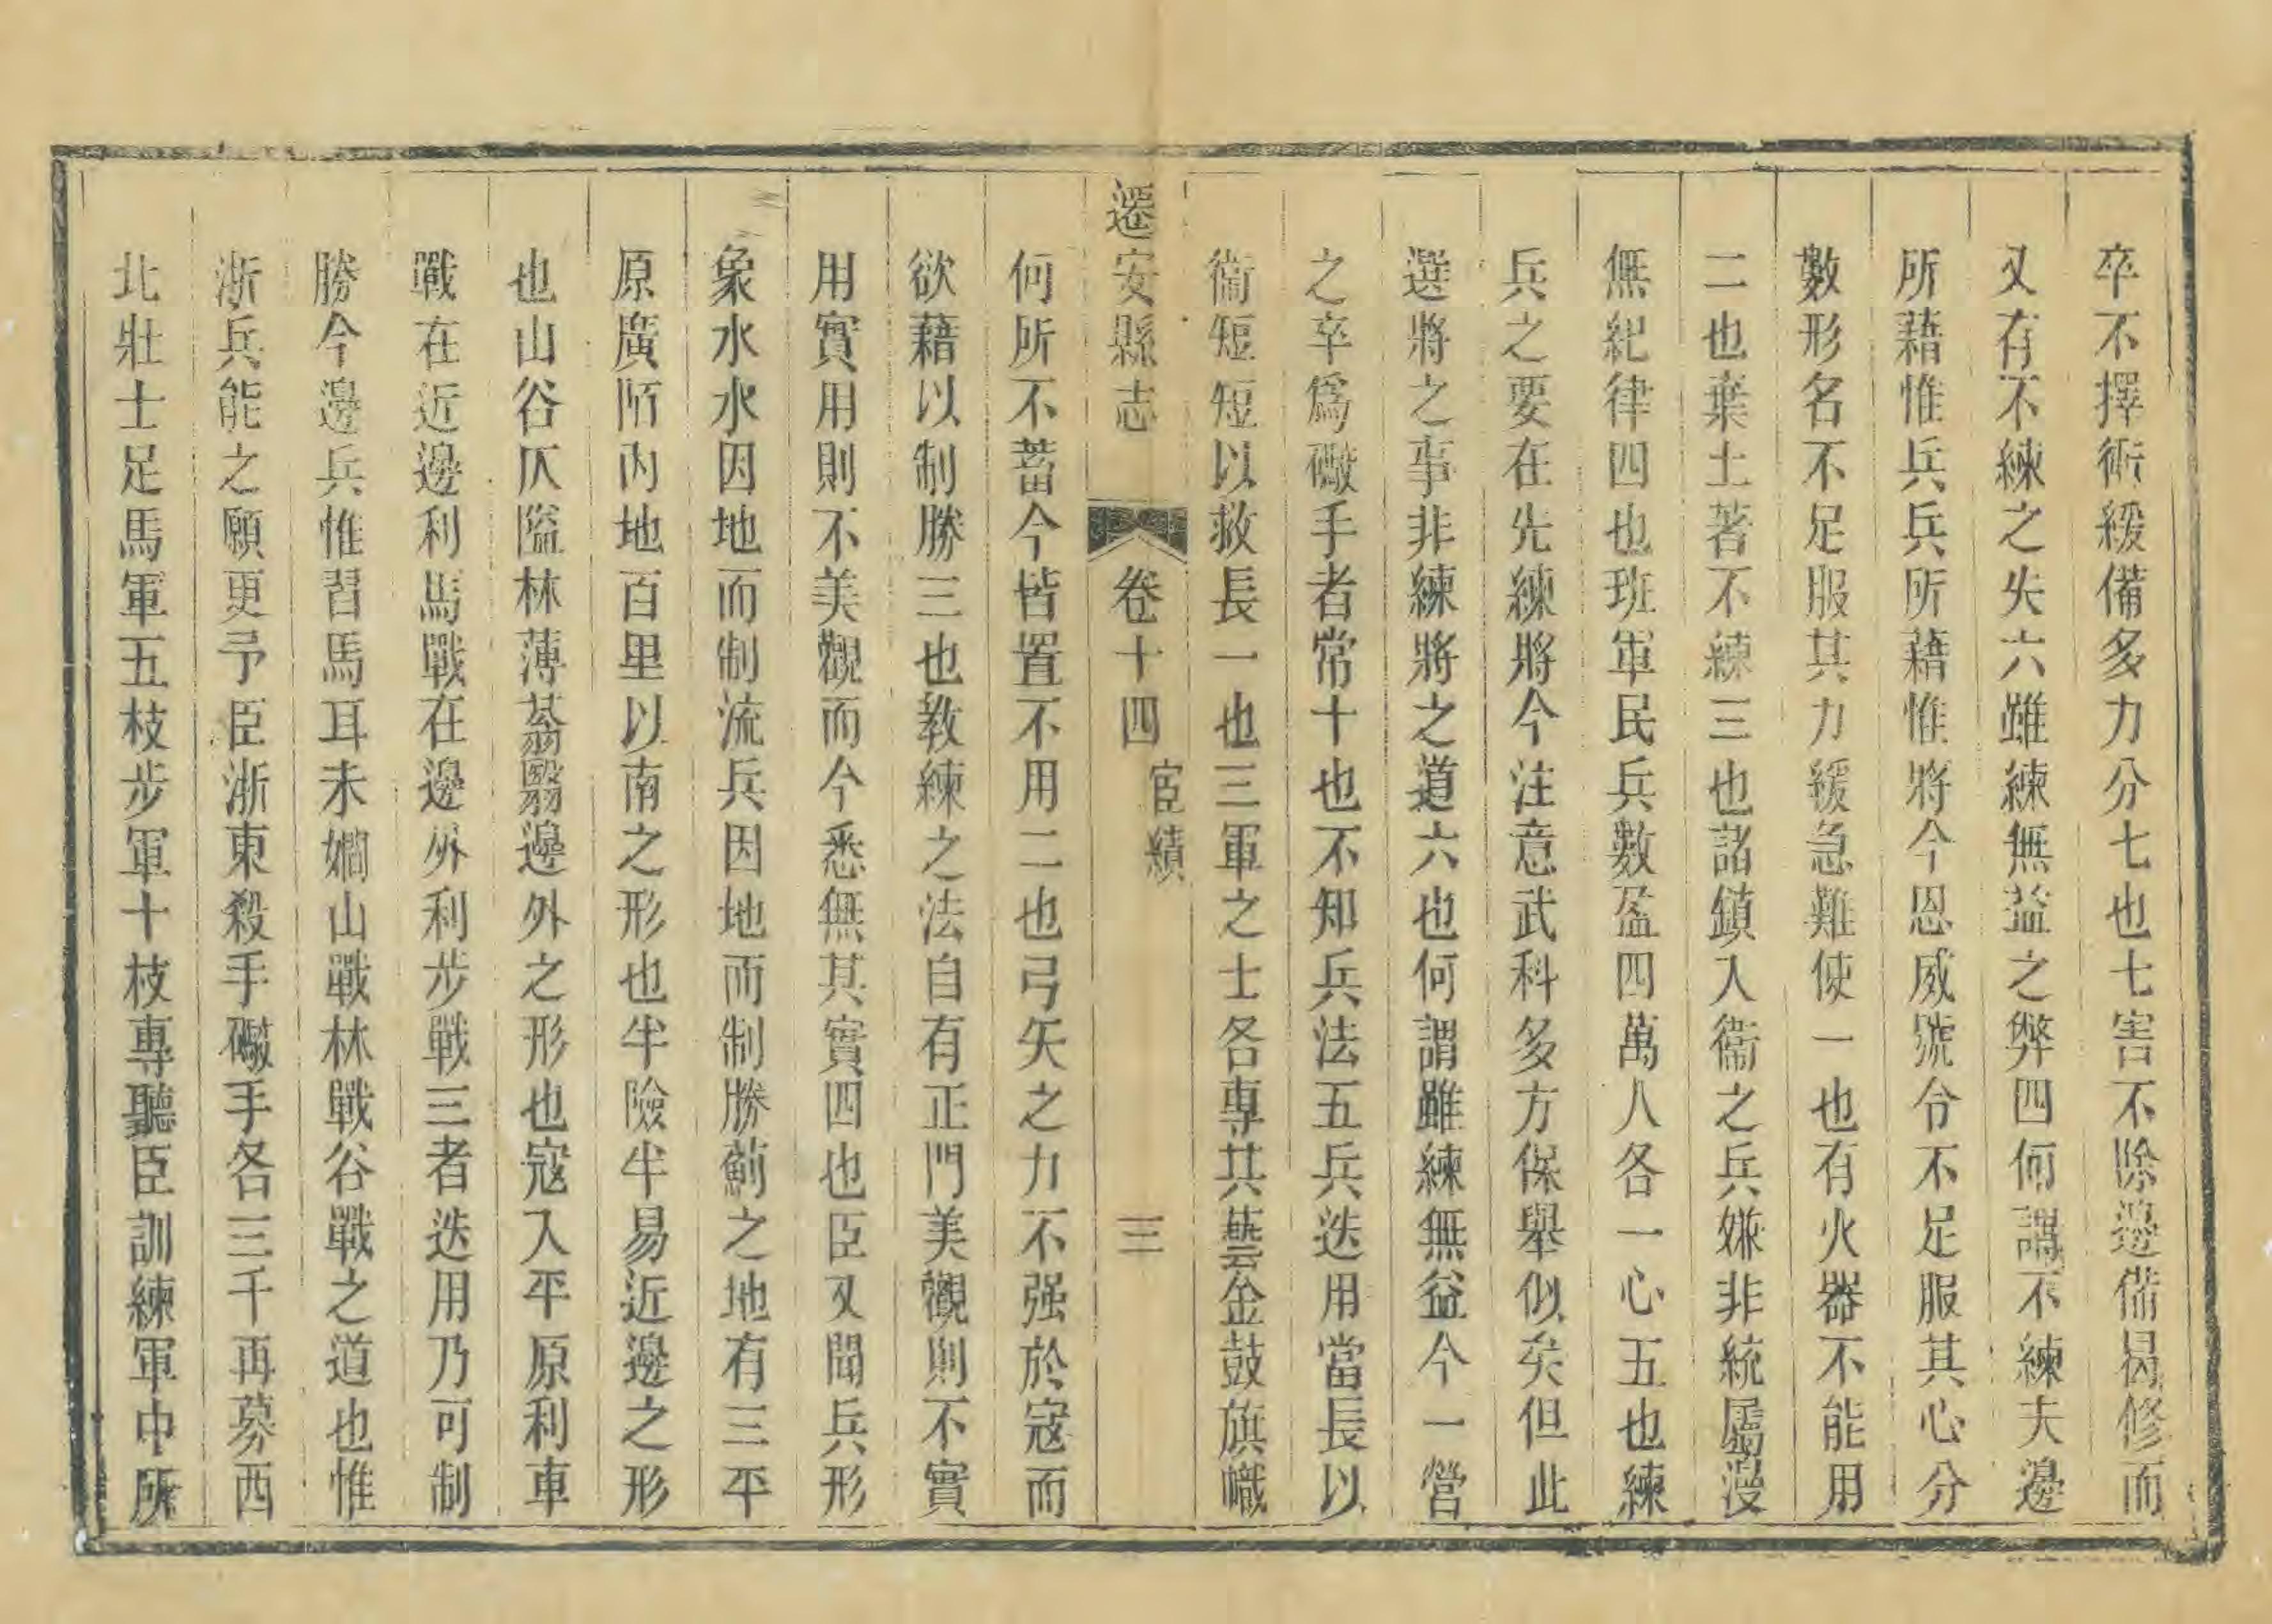 卒不擇術緩備多力分七也七害不除邊備曷修而
又有不練之失六雖練無益之弊四何謂不練夫邊
所藉惟兵兵所藉惟將今恩威號令不足服其心分
數形名不足服其力緩急難使一也有火器不能用
二也棄土著不練三也諸鎮入衞之兵嫌非統屬漫
無紀律四也班軍民兵數盈四萬人各一心五也練
兵之要在先練將今注意武科多方保舉似矣但此
選將之事非練將之道六也何謂雖練無益今一營
之卒爲礮手者常十也不知兵法五兵迭用當長以
衞短短以救長一也三軍之士各專其藝金鼓旗幟
遷安縣志 卷十四 宦績 三
何所不蓄今皆置不用二也弓矢之力不强於寇而
欲藉以制勝三也敎練之法自有正門美觀則不實
用實用則不美觀而今悉無其實四也臣又聞兵形
象水水因地而制流兵因地而制勝薊之地有三平
原廣陌內地百里以南之形也半險半易近邊之形
也山谷仄隘林薄蓊翳邊外之形也寇入平原利車
戰在近邊利馬戰在邊外利步戰三者迭用乃可制
勝今邊兵惟習馬耳未嫺山戰林戰谷戰之道也惟
浙兵能之願更予臣浙東殺手礮手各三千再募西
北壯士足馬軍五枝步軍十枝專聽臣訓練軍中所